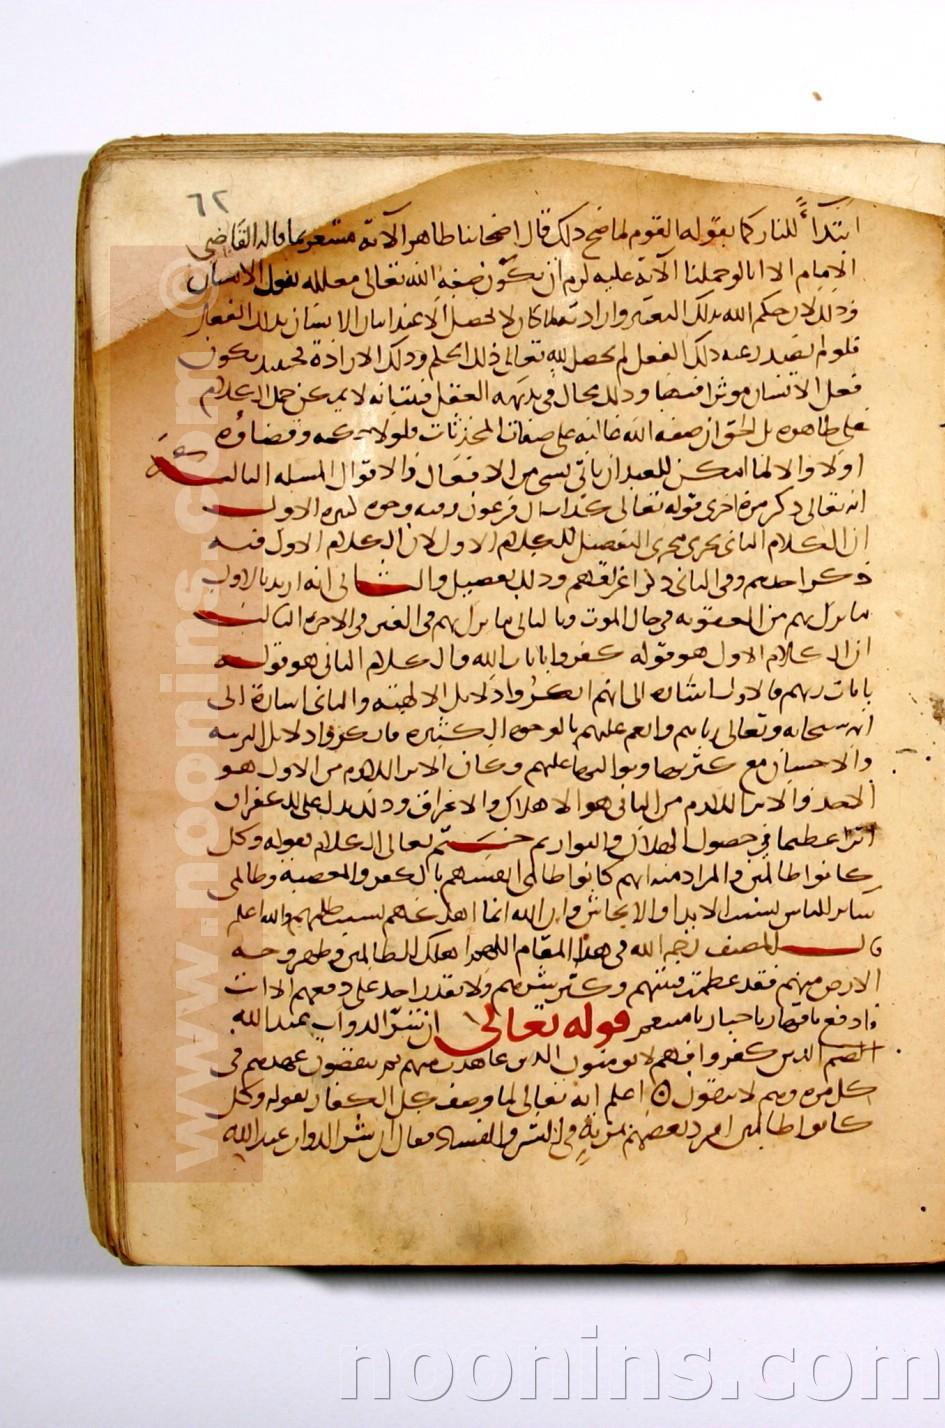 ٦٢
ابتداء للنار كما يقوله القوم لما صح ذلك قال اصحابنا ظاهر الآية مشعر بما قاله القاضي
الامام الا انا لو حملنا الآية عليه لزم ان يكون صفة الله تعالى معللة بفعل الانسان
وذلك لان حكم الله بذلك التغيير وارادته لما كان لا يحصل الا عند اتيان الانسان بذلك الفعل
فلو لم يصدر عنه ذلك الفعل لم يحصل لله تعالى ذلك الحكم وذلك الارادة فحينئذ يكون
فعل الانسان موثرا وذلك محال في بديهة العقل فثبت انه لا يمكن حمل الكلام
على ظاهره بل الحق ان صفة الله غالبة على صفات المحدثات فلولا حكمه وقضاؤه
اولا والا لما امكن للعبد ان ياتي بشيء من الافعال والاقوال المسئلة الثالثة
انه تعالى ذكر مرة اخرى قوله تعالى كداب ال فرعون وفيه وجوه كثيرة الاول
ان الكلام الثاني يجري مجرى التفصيل للكلام الاول لان الكلام الاول فيه
ذكر اخذهم وفي الثاني ذكر اغراقهم وذلك تفصيل والثاني انه اريد بالاول
ما نزل بهم من العقوبة في حال الموت وبالثاني ما نزل بهم في القبر في الاخرة الثالث
ان الكلام الاول هو قوله كفروا بايات الله والكلام الثاني هو قوله
بايات ربهم فالاول اشارة الى انهم انكروا دلايل الالهية والثاني اشارة الى
انه سبحانه وتعالى رباهم وانعم عليهم بالوجوه الكثيرة فانكروا دلايل التربية
والاحسان مع كثرتها وتواليها عليهم وكان الاثر اللازم من الاول هو
الاخذ والاثر اللازم من الثاني هو الاهلاك والاغراق وذلك يدل على ان للكفران
اثرا عظيما في حصول الهلاك والبوار ثم ختم تعالى الكلام بقوله وكل
كانوا ظالمين والمراد منه انهم كانوا ظالمي انفسهم بالكفر والمعصية وظالمي
ساير الناس بسبب الايذا والايحاش وان الله انما اهلكهم بسبب ظلمهم والله اعلم
قال المصنف رحمه الله في هذا المقام اللهم اهلك الظالمين وطهر وجه
الارض منهم فقد عظمت فتنتهم وكثر شرهم ولا يقدر احد على دفعهم الا انت
فادفع يا قهار يا جبار يا منتقم قوله تعالى ان شر الدواب عند الله
الذين كفروا فهم لا يومنون الذين عاهدت منهم ثم ينقضون عهدهم في
كل مرة وهم لا يتقون اعلم انه تعالى لما وصف كل الكفار بقوله وكل
كانوا ظالمين افرد بعضهم بمزية في الشر والفساد فقال ان شر الدواب عند الله
www.noonins.com ©
noonins.com